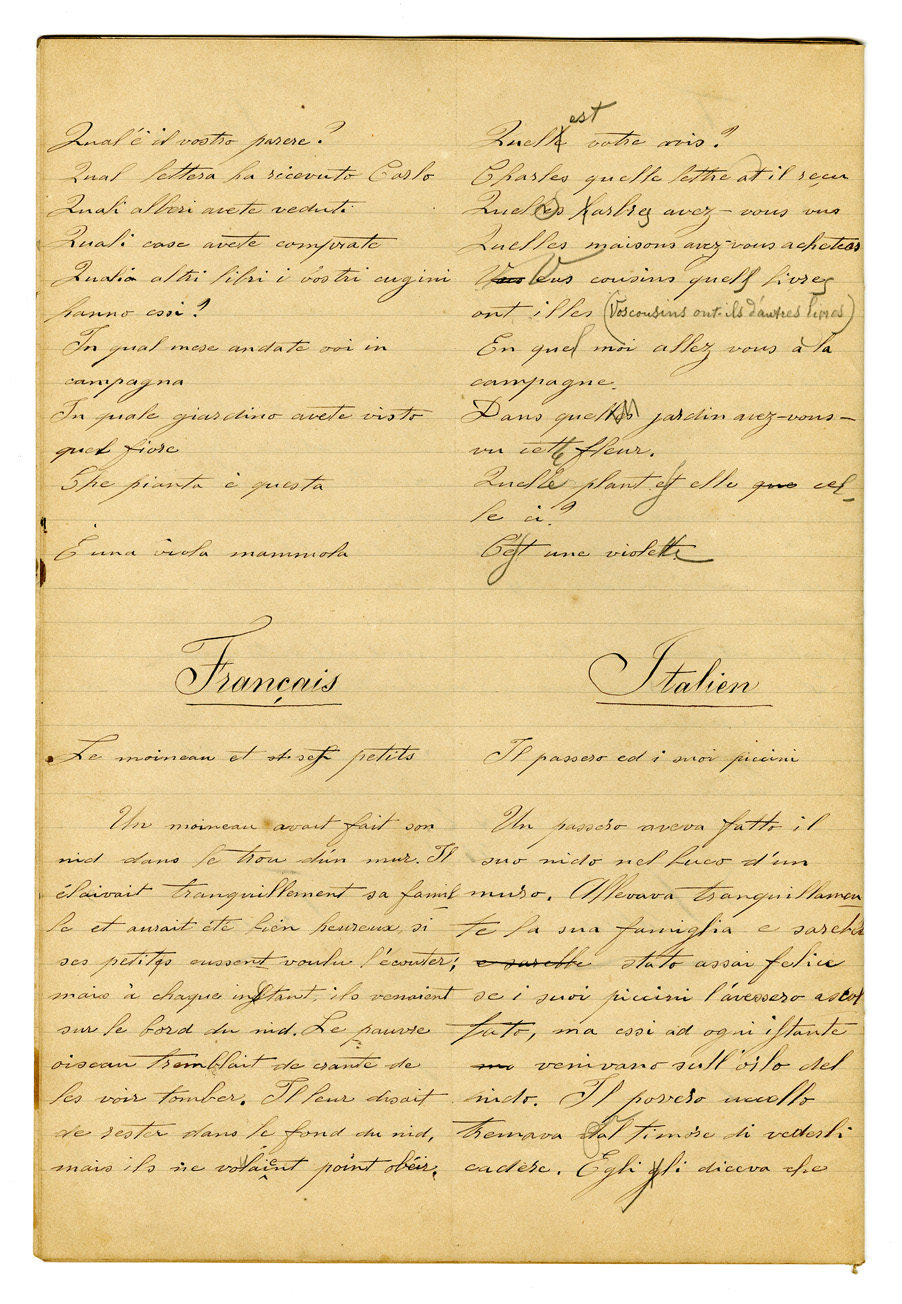 Qual'è il vostro parere?
Qual lettera ha ricevuto Carlo
Quali alberi avete veduti
Quali case avete comprate
Qualia altri libri i vostri cugini
hanno essi?
In qual mese andate voi in
campagna
In quale giardino avete visto
quel fiore
Che pianta è questa
È una viola mammola
est
Quelle votre avis?
Charles quelle lettre at il reçu
Quelles arbres avez-vous vus
Quelles maisons avez-vous acheteés
Vos cousins quels livres
ont illes (Vos cousins ont-ils d'autres livres)
En quel moi allez vous à la
campagne.
Dans quel jardin avez-vous-
vu cette fleur.
Quelle plant est elle que cel-
le ci?
C'est une violette
Français
Le moineau et ses petits
Un moineau avait fait son
nid dans le trou d'un mur. Il
élaivait tranquillement sa famil
le et aurait été bien heureux, si
ses petits eussent voulu l'écouter;
mais à chaque instant, ils venaient
sur le bord du nid. Le pauvre
oiseau tremblait de crante de
les voir tomber. Il leur disait
de rester dans le fond du nid,
mais ils ne volaient point obéir.
Italien
Il passero ed i suoi piccini
Un passero aveva fatto il
suo nido nel buco d'un
muro. Allevava tranquillamen
te la sua famiglia e sarebbe
e sarebbe stato assai felice
se i suoi piccini l'avessero ascol
tato, ma essi ad ogni istante
venivano sull'orlo del
nido. Il povero uccello
tremava dal timore di vederli
cadere. Egli gli diceva che